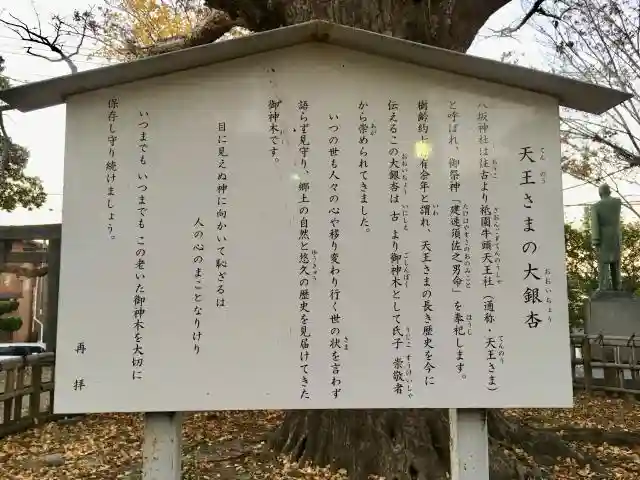 天王さまの大銀杏
八坂神社は往古より祇園牛頭天王社（通称・天王さま）
と呼ばれ、御祭神「建速須佐之男命」を奉祀します。
樹齢約 有余年と謂れ、天王さまの長き歴史を今に
伝えるこの大銀杏は、古より御神木として氏子 崇敬者
から崇められてきました。
いつの世も人々の心や移り変わり行く世の状を言わず
語らず見守り、郷土の自然と悠久の歴史を見届けてきた
御神木です。
目に見えぬ神に向かいて恥ざるは
人の心のまことなりけり
いつまでも いつまでも この老いた御神木を大切に
保存し守り続けましょう。
再拝